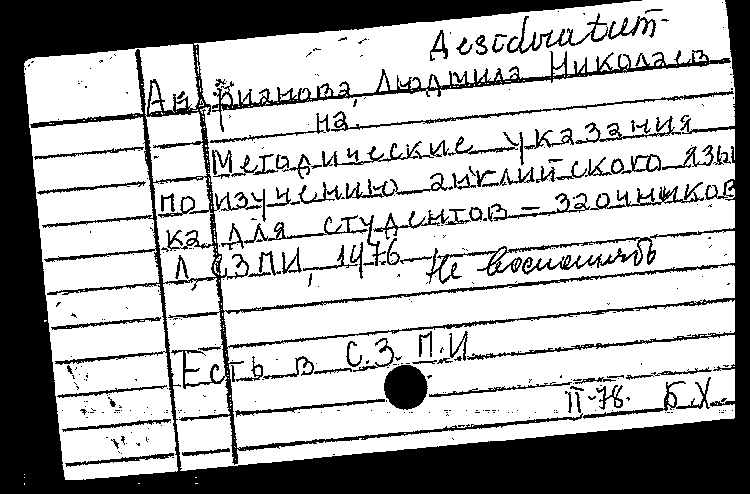 Desiduratum
Андрианова, Людмила Николаев
на.
Методические указания
по изучению английского язы
ка для студентов – заочников
Л, СЗПИ, 1976
Не восполнять
Есть в С.З.П.И.
II-78. Б.Х.